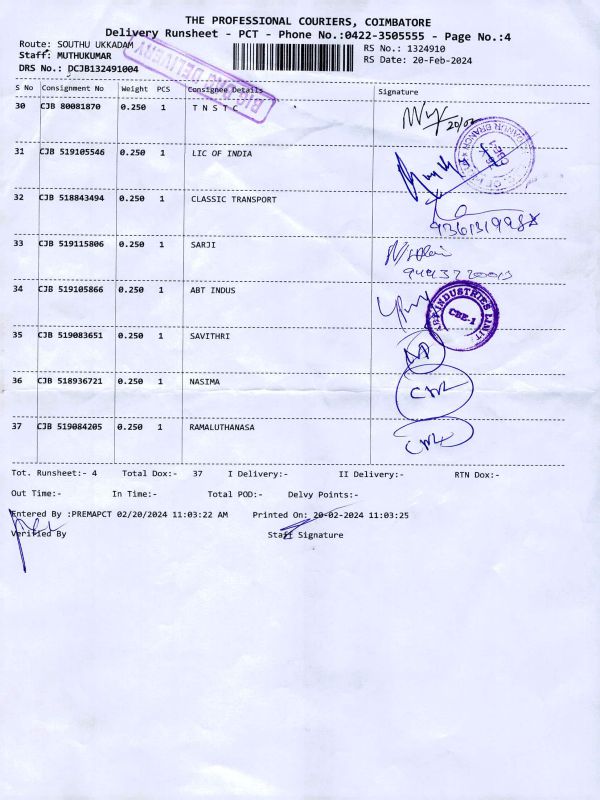 THE PROFESSIONAL COURIERS, COIMBATORE
Delivery Runsheet - PCT - Phone No.:0422-3505555 - Page No.:4
Route: SOUTHU UKKADAM
RS No.: 1324910
Staff: MUTHUKUMAR
RS Date: 20-Feb-2024
DRS No.: DCJB132491004
S No Consignment No Weight PCS Consignee Details Signature
30 CJB 80081870 0.250 1 T N S T C
20/02
31 CJB 519105546 0.250 1 LIC OF INDIA
32 CJB 518843494 0.250 1 CLASSIC TRANSPORT
33 CJB 519115806 0.250 1 SARJI
34 CJB 519105866 0.250 1 ABT INDUS
ABT INDUSTRIES LIMIT
CBE-1
35 CJB 519083651 0.250 1 SAVITHRI
36 CJB 518936721 0.250 1 NASIMA
37 CJB 519084205 0.250 1 RAMALUTHANASA
Tot. Runsheet:- 4 Total Dox:- 37 I Delivery:- II Delivery:- RTN Dox:-
Out Time:- In Time:- Total POD:- Delvy Points:-
Entered By :PREMAPCT 02/20/2024 11:03:22 AM Printed On: 20-02-2024 11:03:25
Verified By Staff Signature